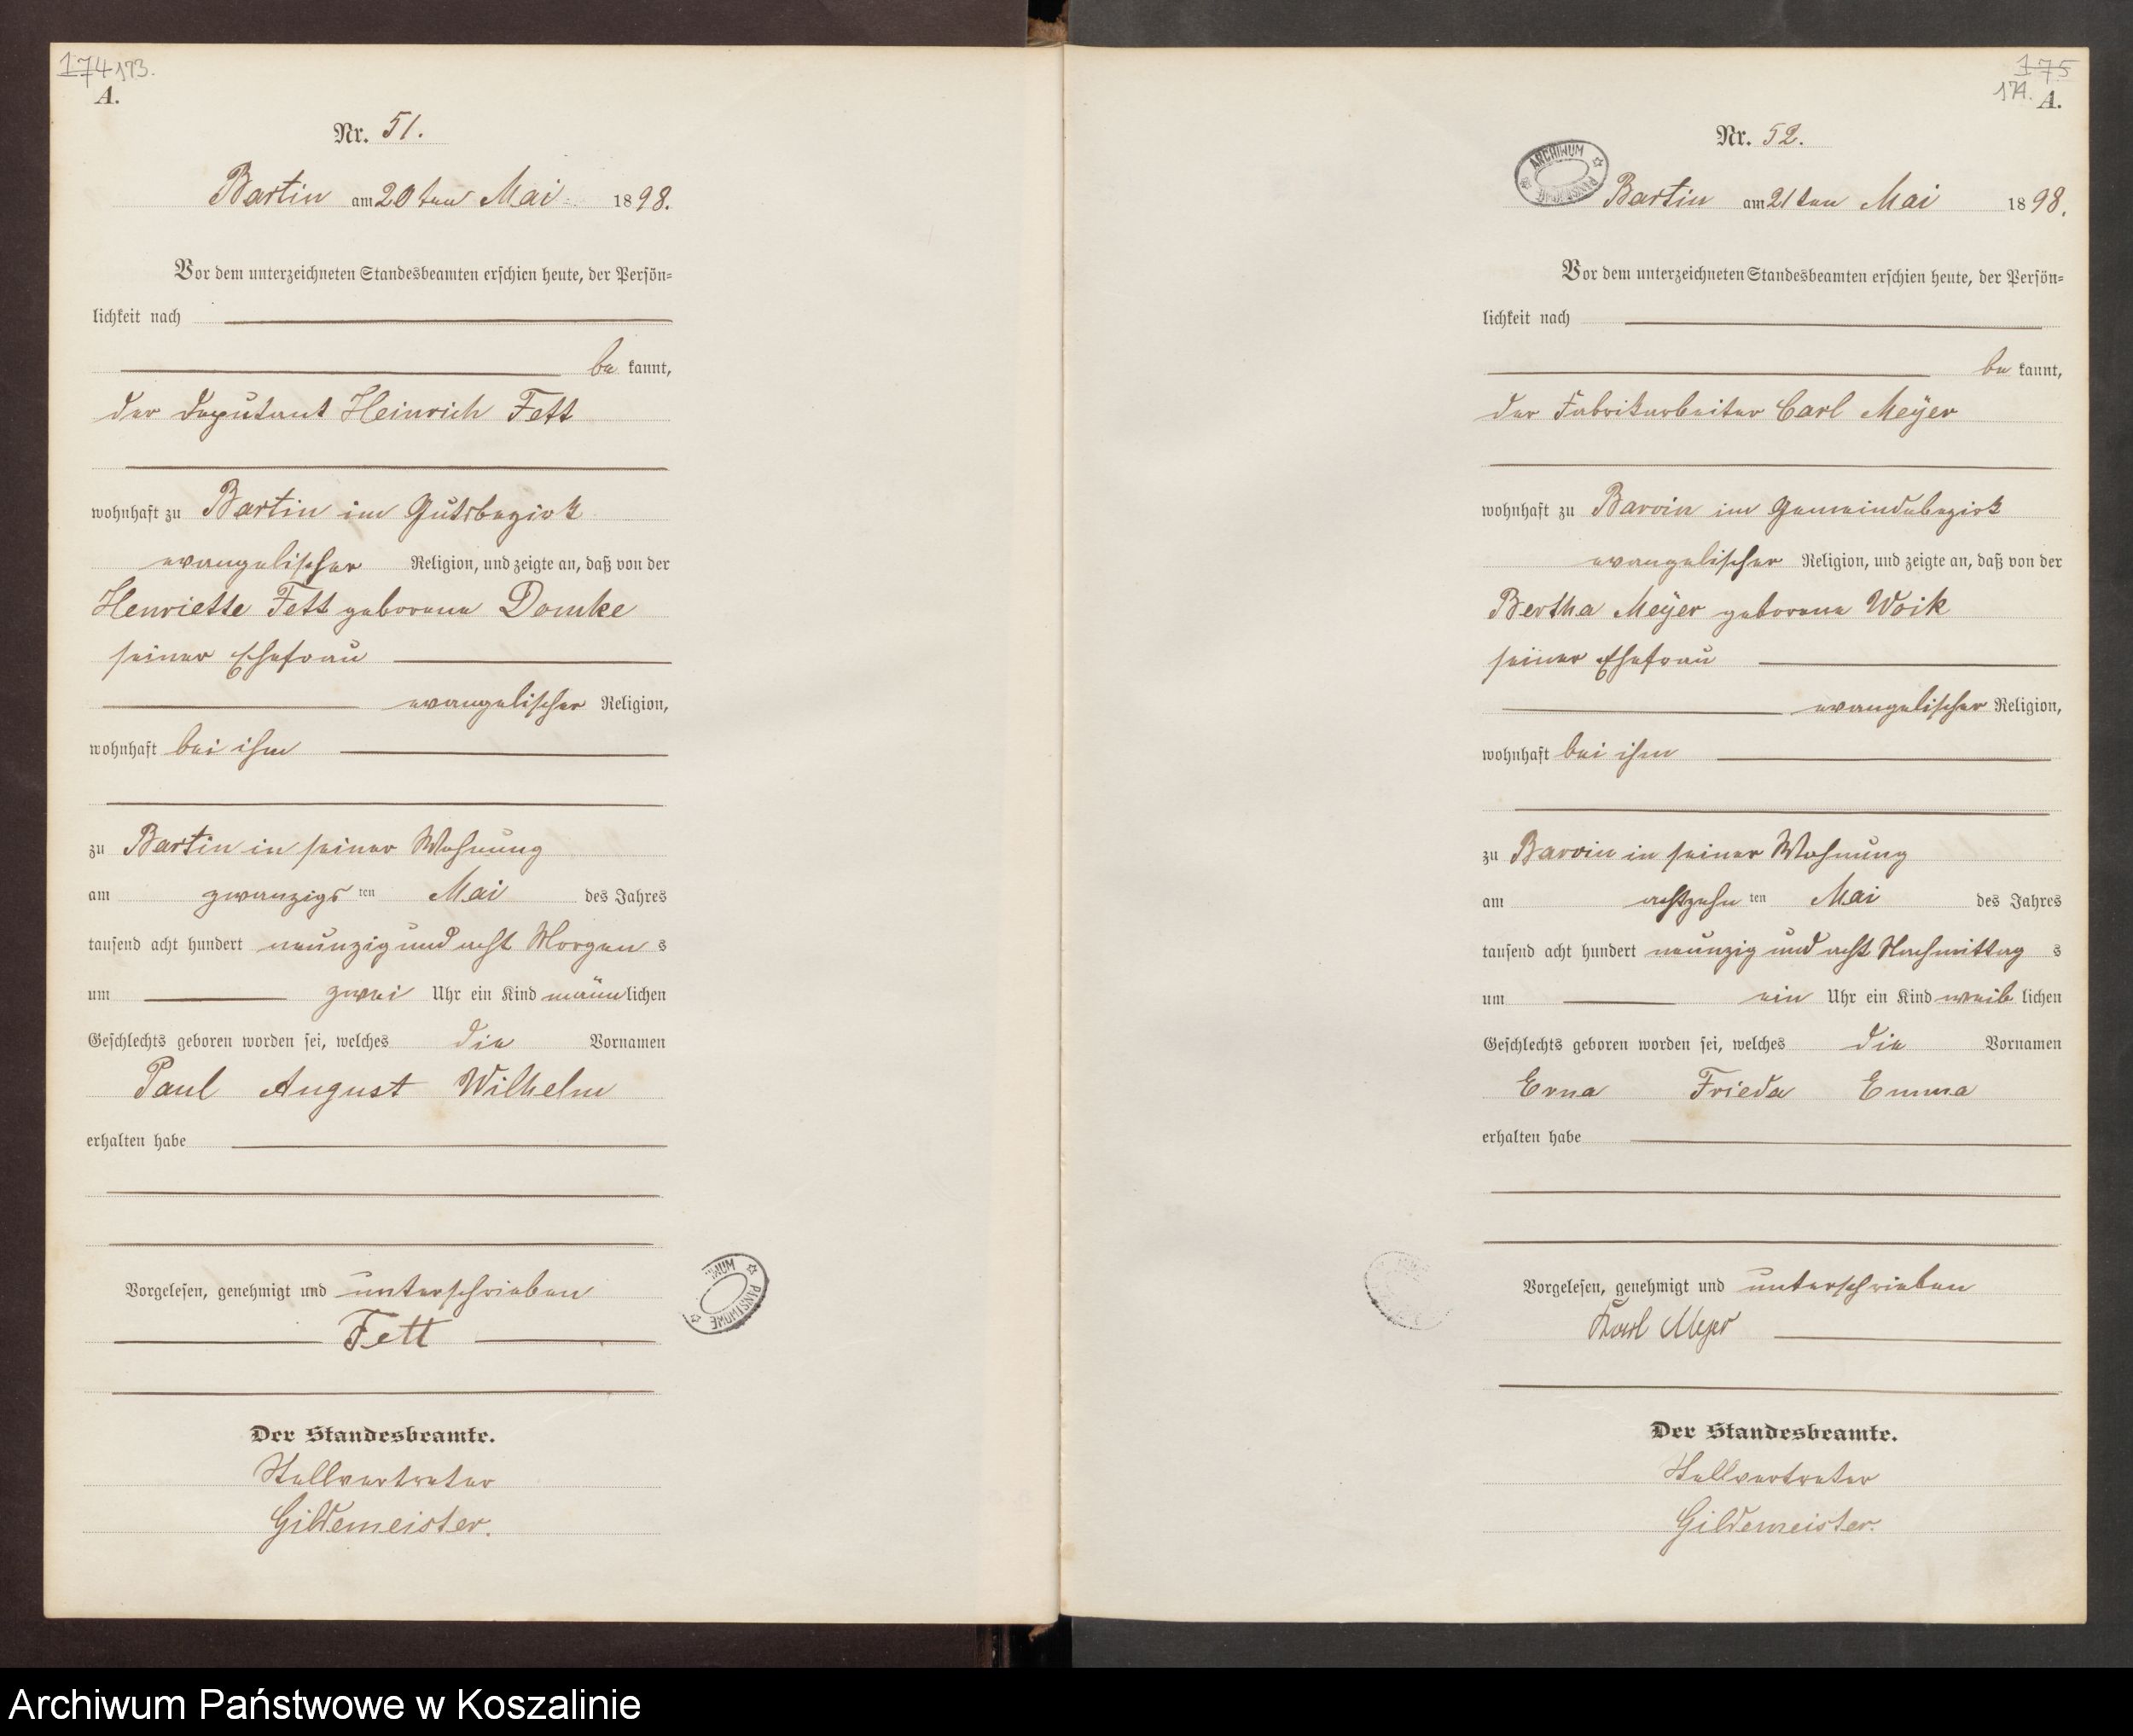 174 173.
A.
Nr. 51.
Bartin am 20ten Mai 1898.
Vor dem unterzeichneten Standesbeamten erschien heute, der Persön-
lichkeit nach
be kannt,
der Deputant Heinrich Fett
wohnhaft zu Bartin im Gutsbezirk
evangelischer Religion, und zeigte an, daß von der
Henriette Fett geborene Domke
seiner Ehefrau
evangelischer Religion,
wohnhaft bei ihm
zu Bartin in seiner Wohnung
am zwanzigsten Mai des Jahres
tausend acht hundert neunzig und acht Morgens
um zwei Uhr ein Kind männlichen
Geschlechts geboren worden sei, welches die Vornamen
Paul August Wilhelm
erhalten habe
Vorgelesen, genehmigt und unterschrieben
Fett
Der Standesbeamte.
Stellvertreter
Gildemeister.
175
174. A.
Nr. 52.
ARCHIWUM PAŃSTWOWE
Bartin am 21ten Mai 1898.
Vor dem unterzeichneten Standesbeamten erschien heute, der Persön-
lichkeit nach
be kannt,
der Fabrikarbeiter Carl Meÿer
wohnhaft zu Barvin im Gemeindebezirk
evangelischer Religion, und zeigte an, daß von der
Bertha Meÿer geborene Woik
seiner Ehefrau
evangelischer Religion,
wohnhaft bei ihm
zu Barvin in seiner Wohnung
am achtzehnten Mai des Jahres
tausend acht hundert neunzig und acht Nachmittags
um ein Uhr ein Kind weiblichen
Geschlechts geboren worden sei, welches die Vornamen
Erna Frieda Emma
erhalten habe
Vorgelesen, genehmigt und unterschrieben
Karl Meyer
Der Standesbeamte.
Stellvertreter
Gildemeister.
Archiwum Państwowe w Koszalinie